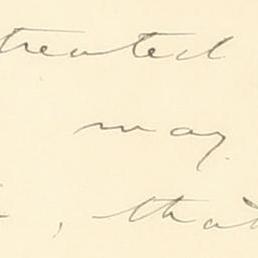 treated
may
, that